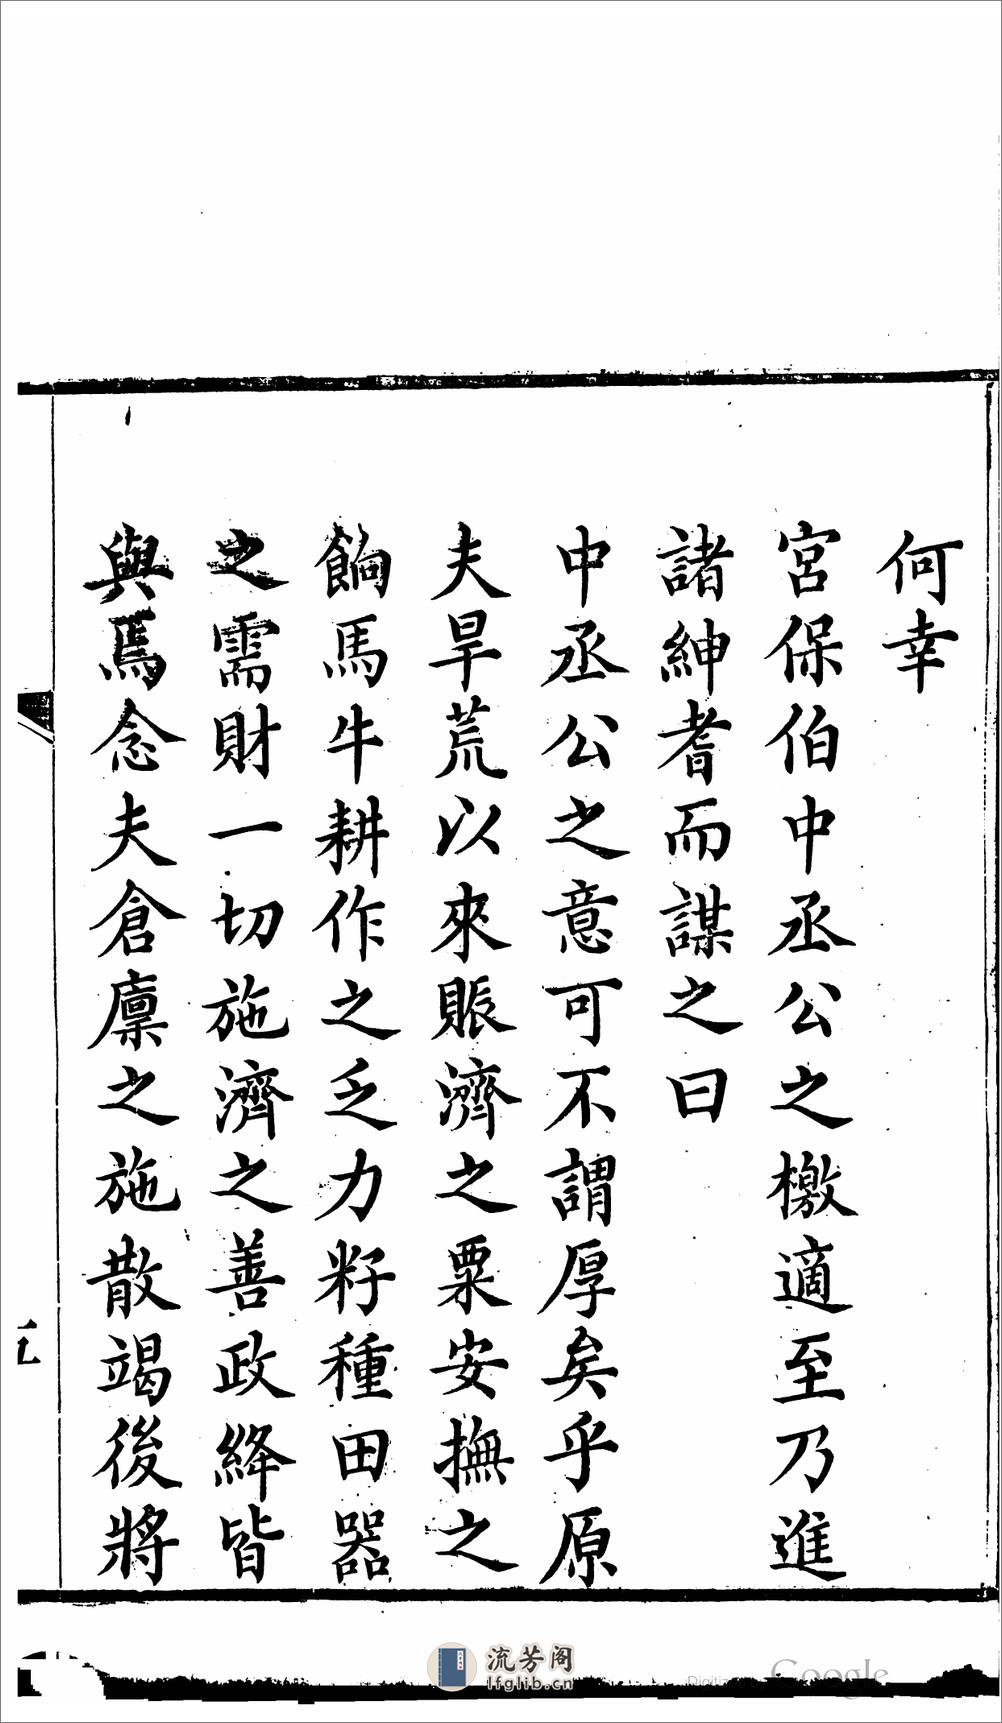 何幸
宮保伯中丞公之檄適至乃進
諸紳耆而謀之曰
中丞公之意可不謂厚矣乎原
夫旱荒以來賑濟之粟安撫之
餉馬牛耕作之乏力籽種田器
之需財一切施濟之善政絳皆
與焉念夫倉廩之施散竭後將
流芳阁
lfglib.cn
Google